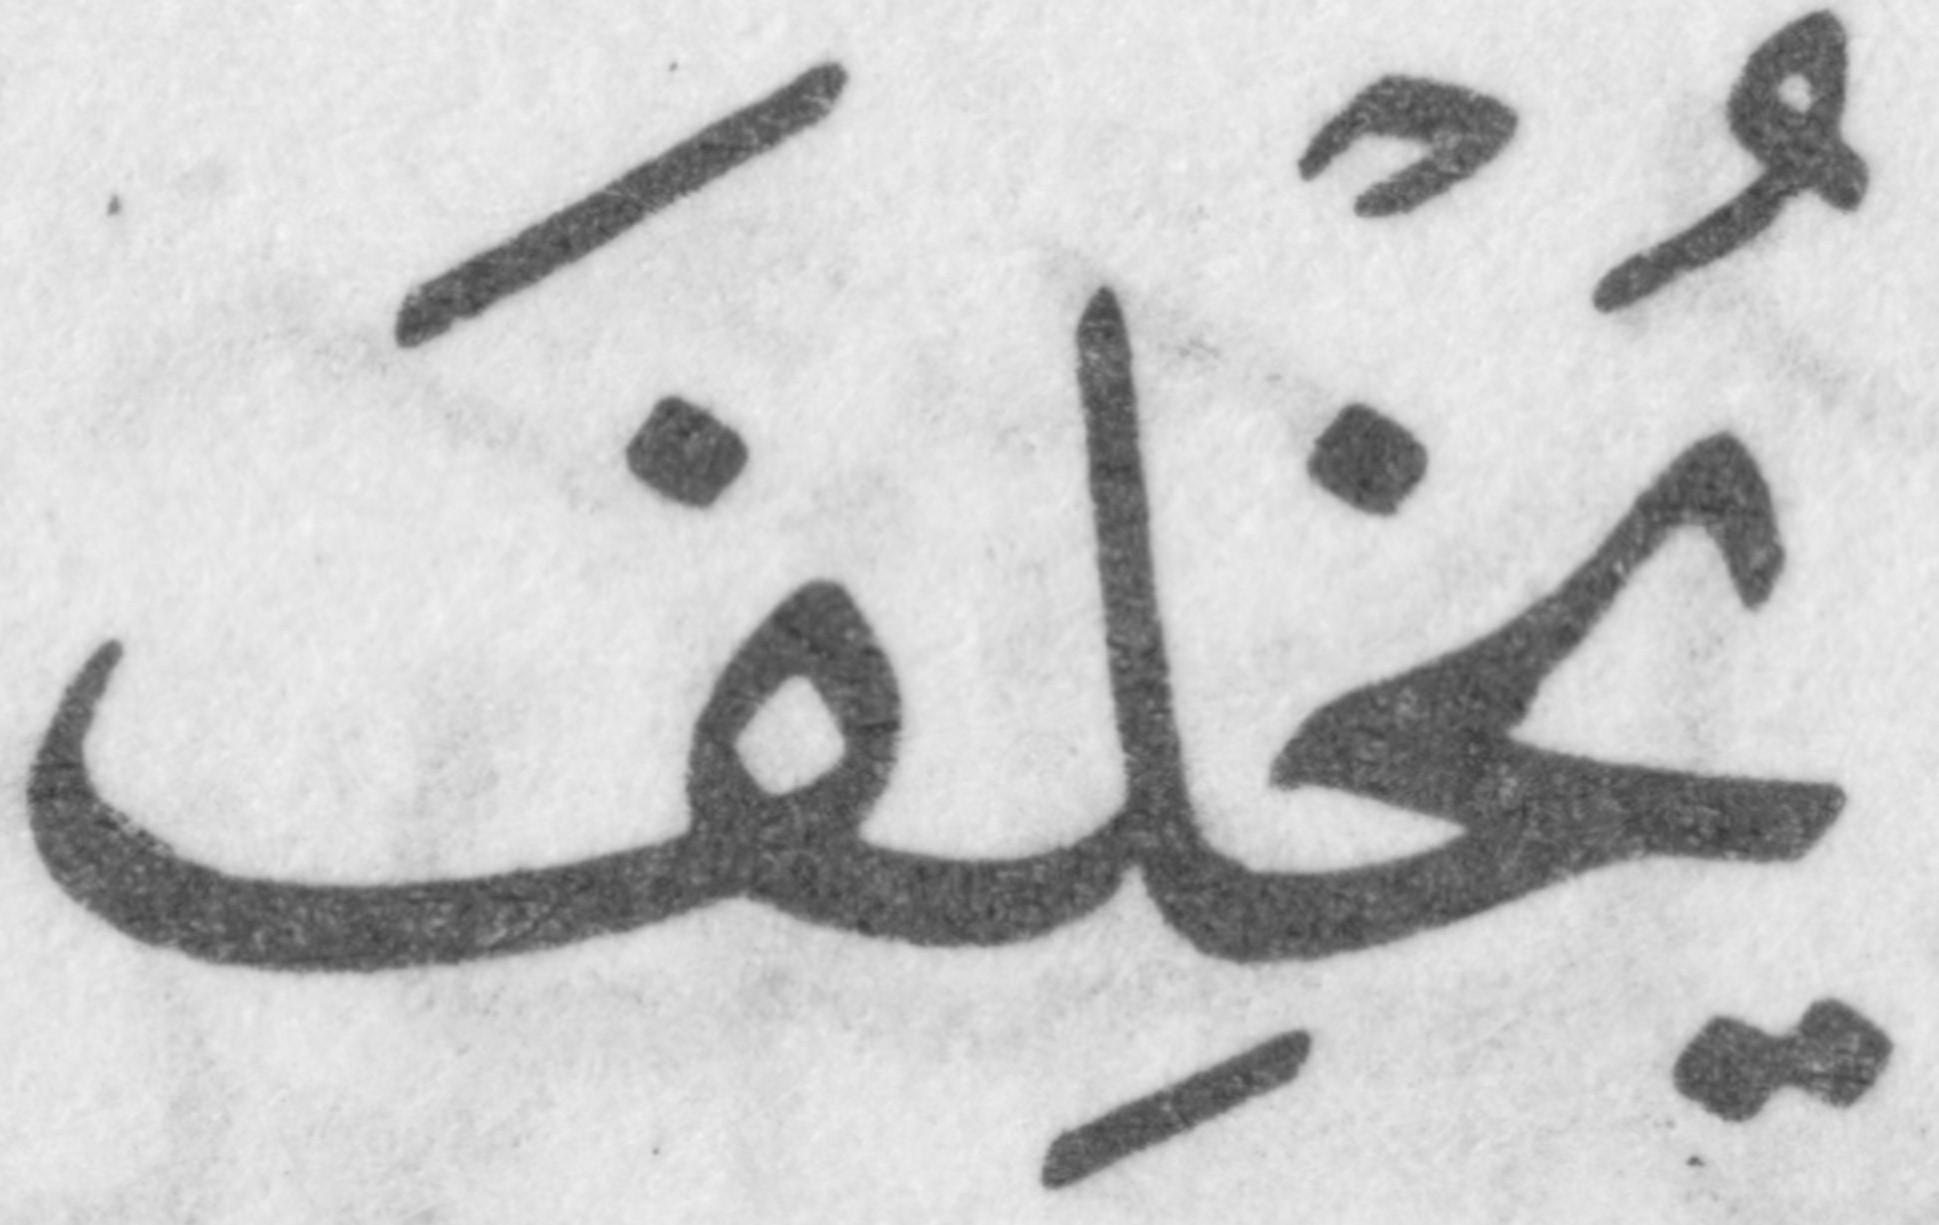 يُخْلِفَ